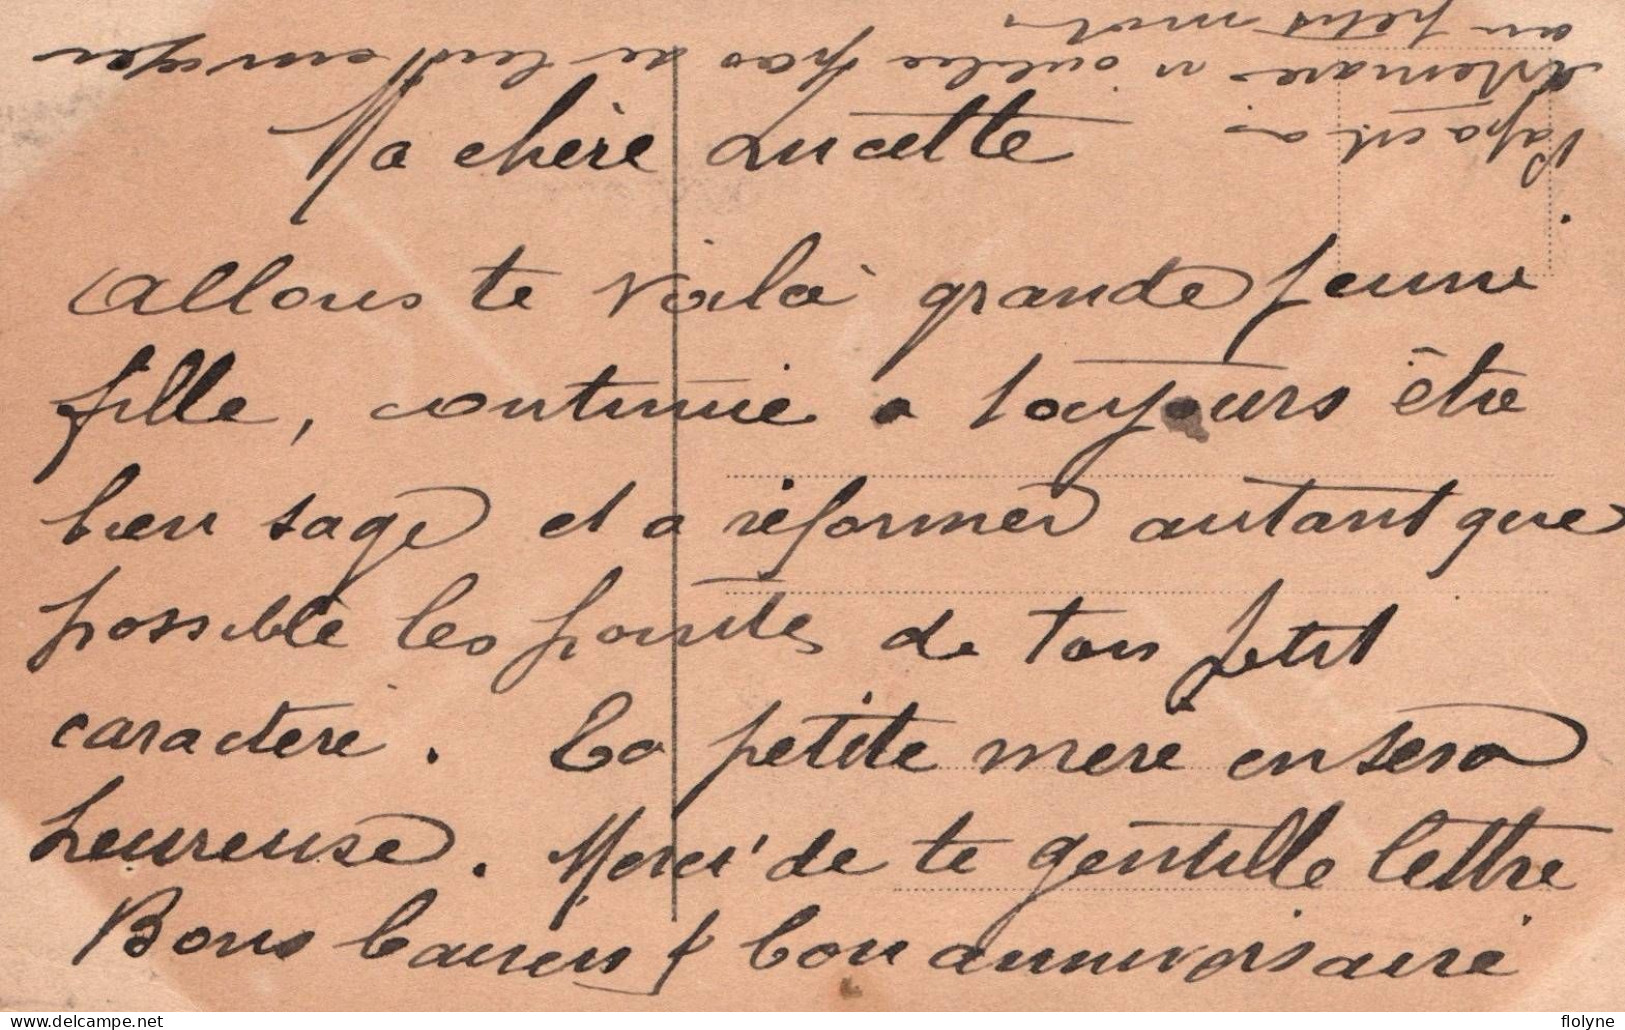 Ma chère Lucette
Allons te voilà grande jeune
fille, continue a toujours être
bien sage et a réformer autant que
possible les pointes de ton petit
caractère. Ta petite mère en sera
heureuse. Merci de te gentille lettre
Bons baisers & bon anniversaire
Papa est a
Artemare n oublie pas de lui envoyer
un petit mot.
flolyne
delcampe.net